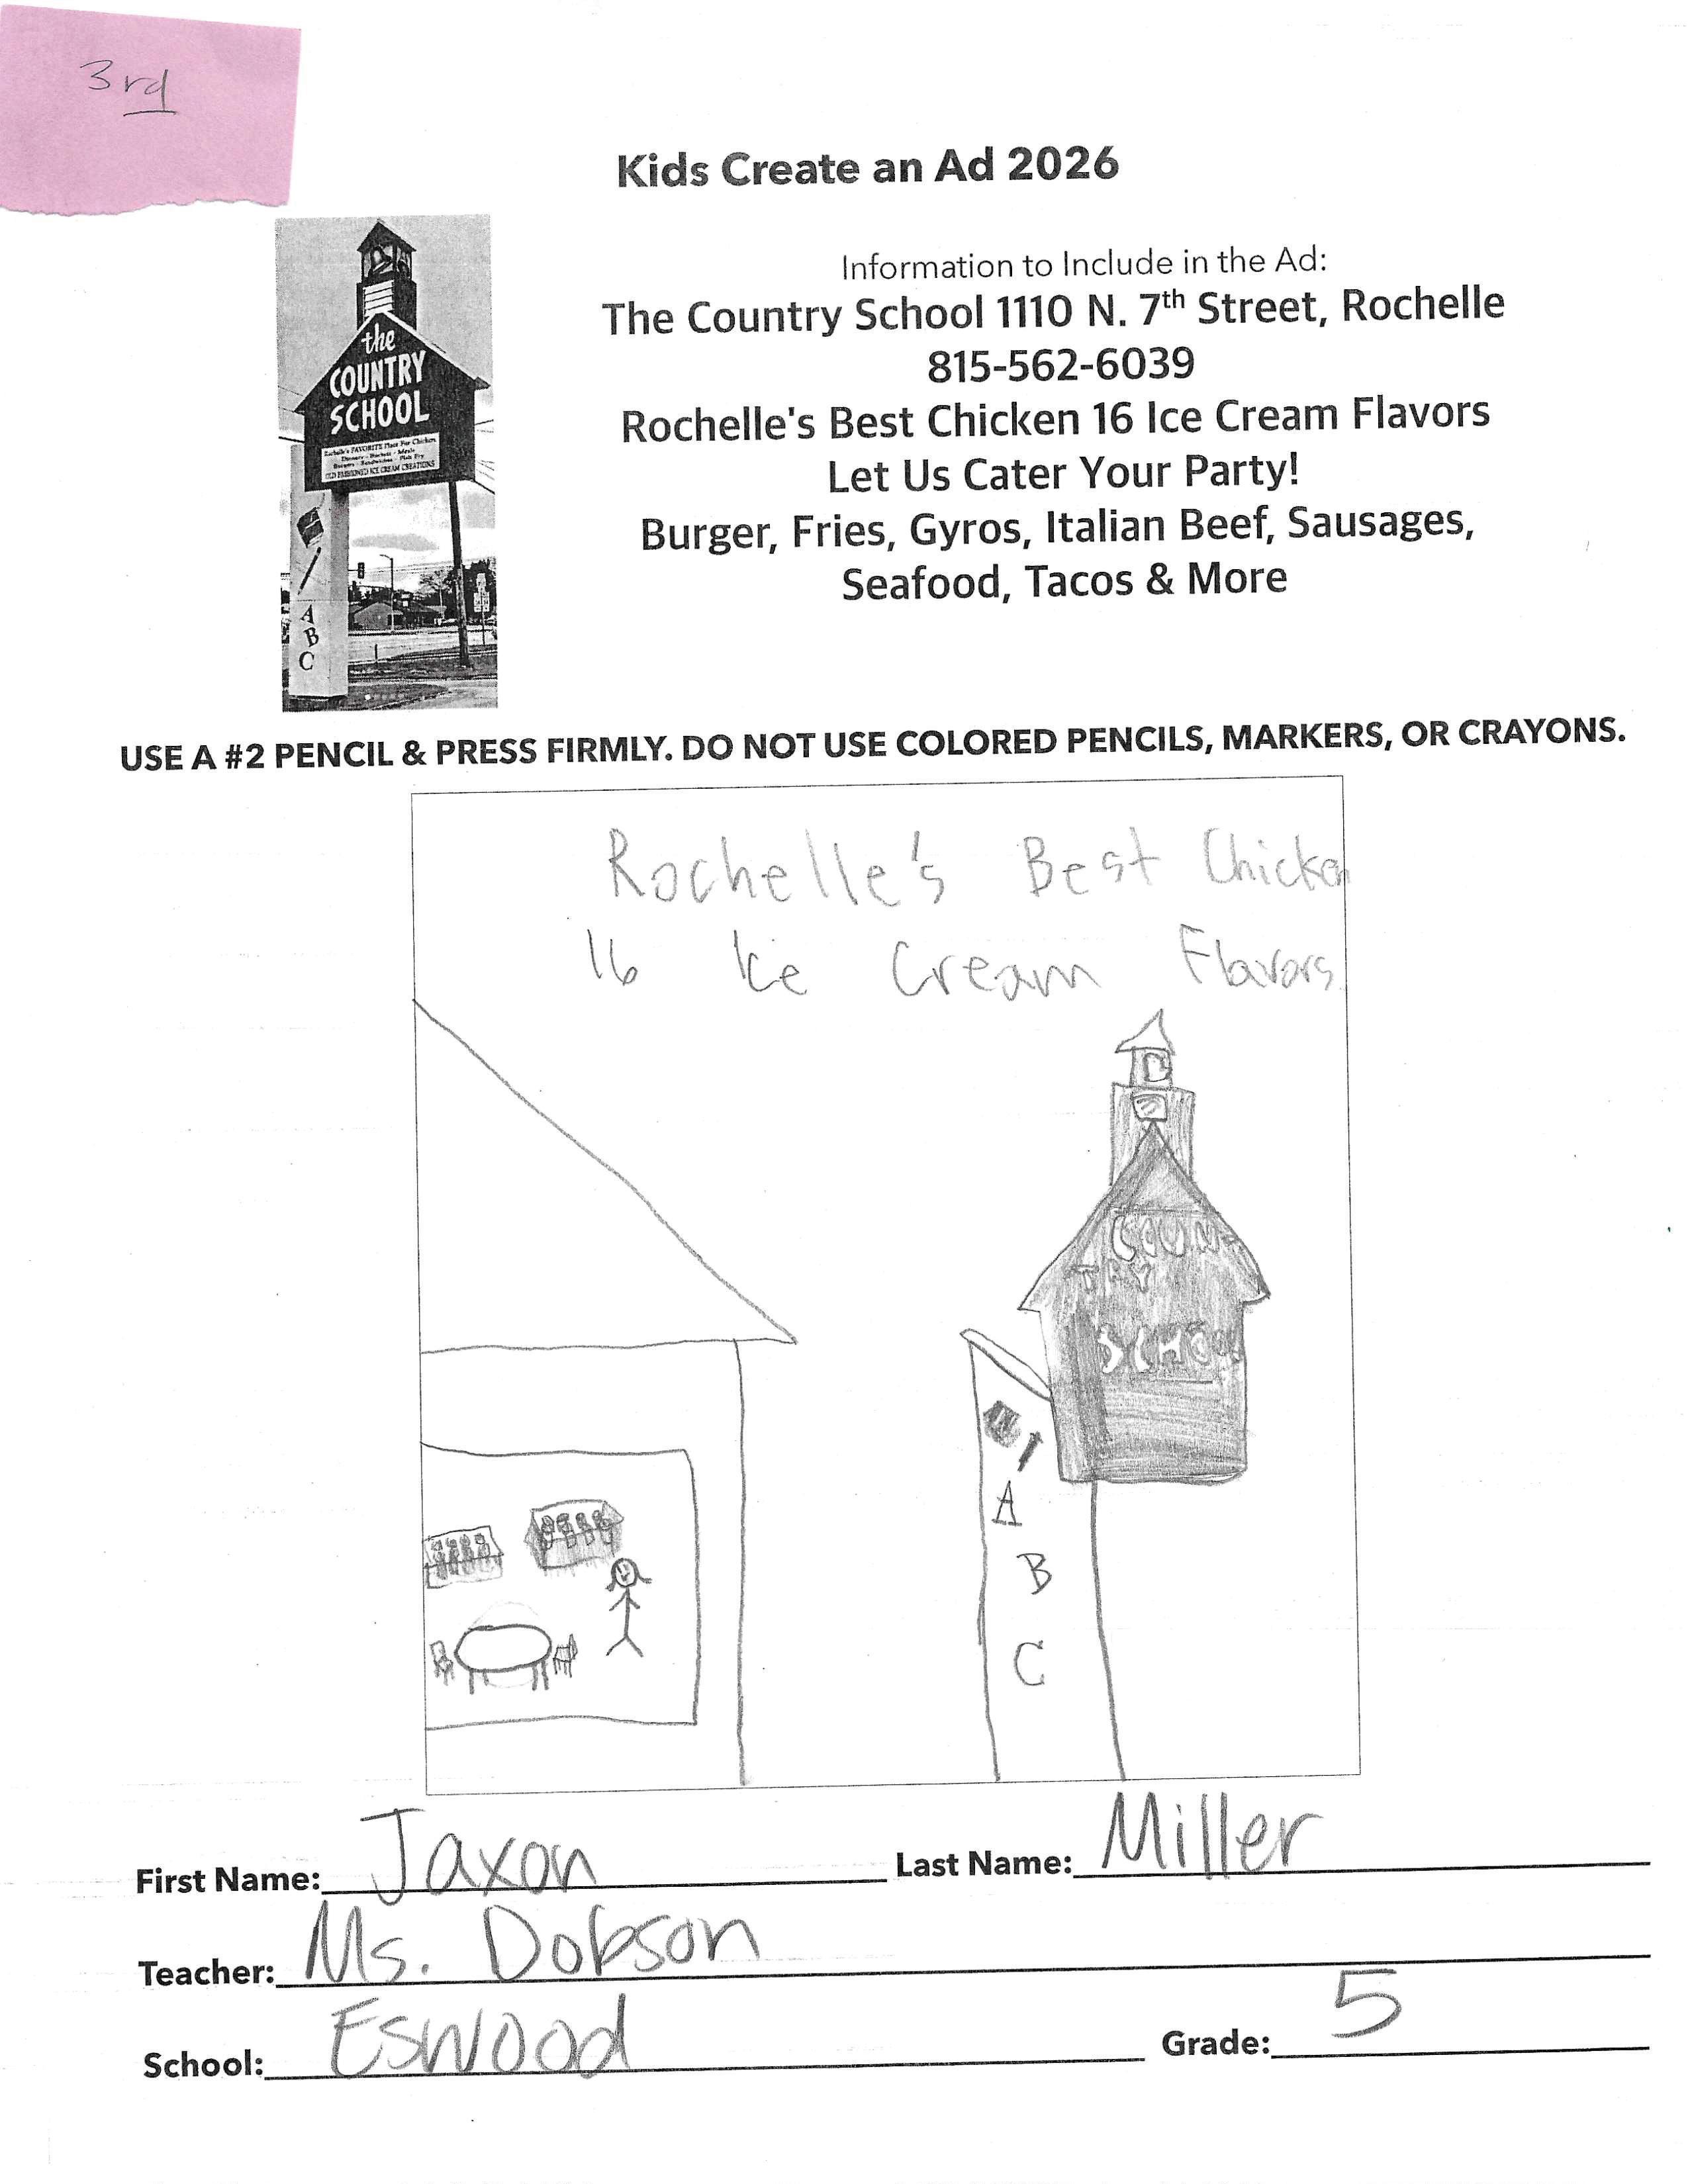 3rd
Kids Create an Ad 2026
the
COUNTRY
SCHOOL
Rochelle's FAVORITE Place For Chicken
Dinners - Buckets - Meals
Burgers - Sandwiches - Fish Fry
OLD FASHIONED ICE CREAM CREATIONS
A
B
C
Information to Include in the Ad:
The Country School 1110 N. 7th Street, Rochelle
815-562-6039
Rochelle's Best Chicken 16 Ice Cream Flavors
Let Us Cater Your Party!
Burger, Fries, Gyros, Italian Beef, Sausages,
Seafood, Tacos & More
USE A #2 PENCIL & PRESS FIRMLY. DO NOT USE COLORED PENCILS, MARKERS, OR CRAYONS.
Rochelle's Best Chicken
16 Ice Cream Flavors
COUN-
TRY
SCHOOL
A
B
C
First Name: Jaxon Last Name: Miller
Teacher: Ms. Dobson
School: Eswood Grade: 5